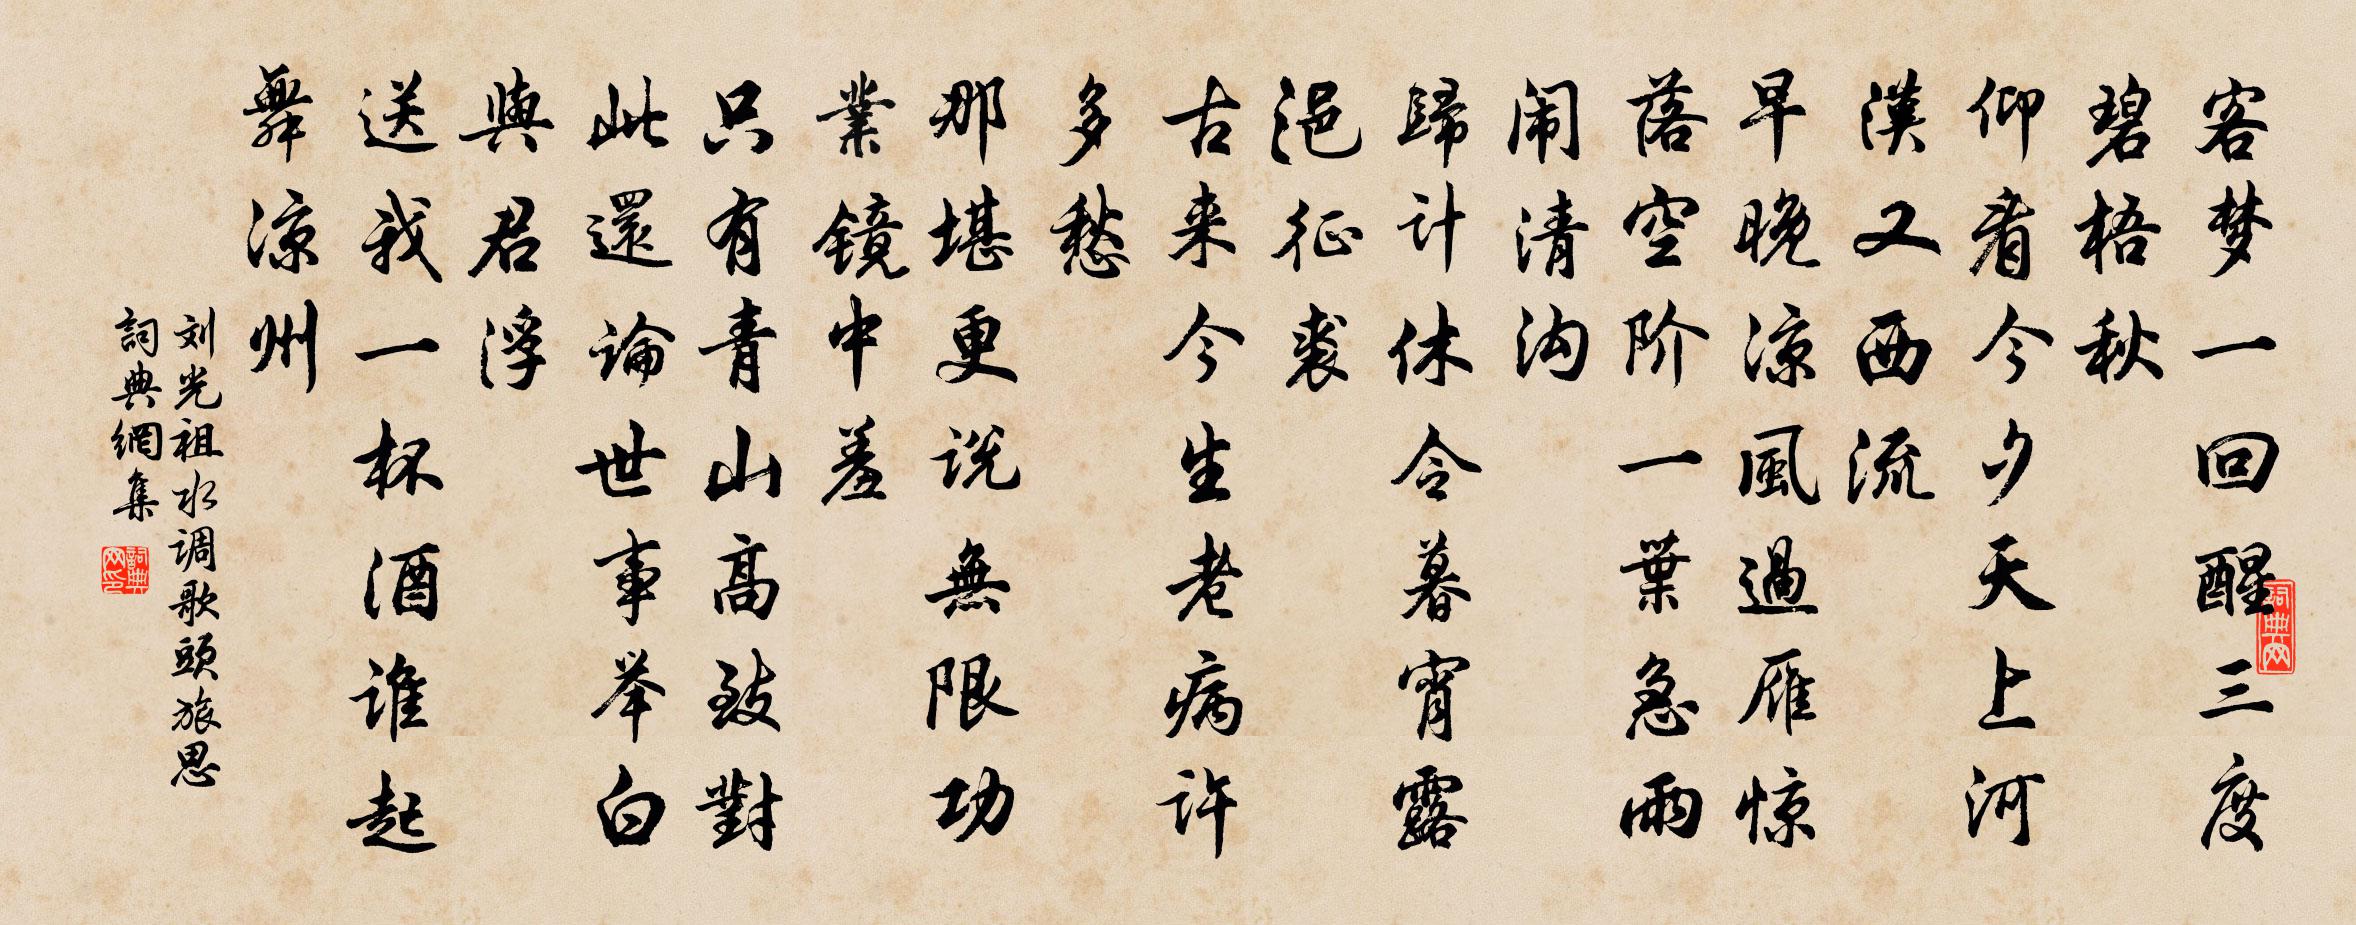 客梦一回醒三度
碧梧秋
仰看今夕天上河
漢又西流
早晚凉風過雁惊
落空阶一葉急雨
闹清沟
歸计休令暮宵露
浥征裘
古来今生老病许
多愁
那堪更说無限功
業镜中羞
只有青山高致對
此還論世事举白
與君浮
送我一杯酒谁起
舞凉州
刘光祖水调歌頭旅思
詞典網集
詞典网
詞典网印